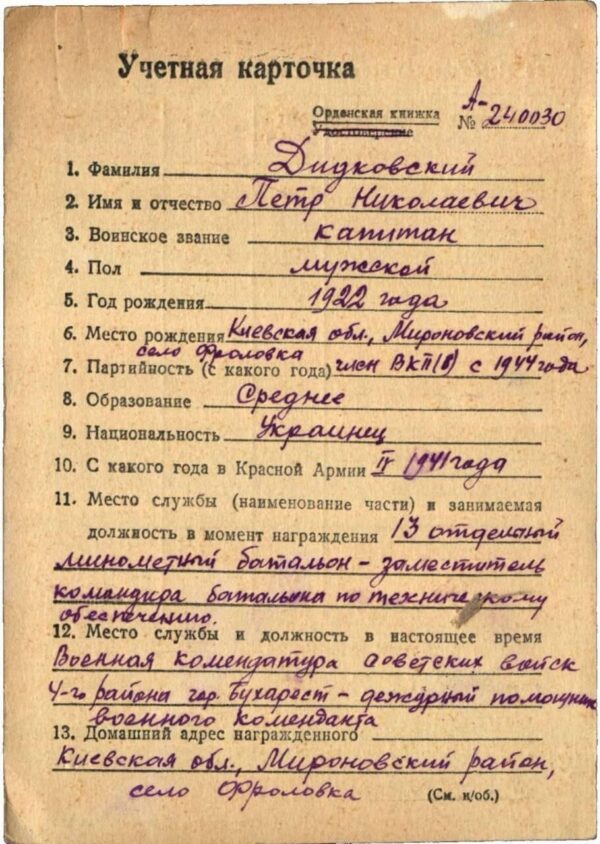 Учетная карточка
Орденская книжка № А-240030
Удостоверение
1. Фамилия Дидковский
2. Имя и отчество Петр Николаевич
3. Воинское звание капитан
4. Пол мужской
5. Год рождения 1922 года
6. Место рождения Киевская обл., Мироновский район,
село Фроловка
7. Партийность (с какого года) член ВКП(б) с 1944 года
8. Образование Среднее
9. Национальность Украинец
10. С какого года в Красной Армии IV 1941 года
11. Место службы (наименование части) и занимаемая
должность в момент награждения 13 отдельный
минометный батальон - заместитель
командира батальона по техническому
обеспечению.
12. Место службы и должность в настоящее время
Военная комендатура советских войск
4-го района гор. Бухарест - дежурный помощник
военного коменданта
13. Домашний адрес награжденного
Киевская обл., Мироновский район,
село Фроловка
(См. н/об.)